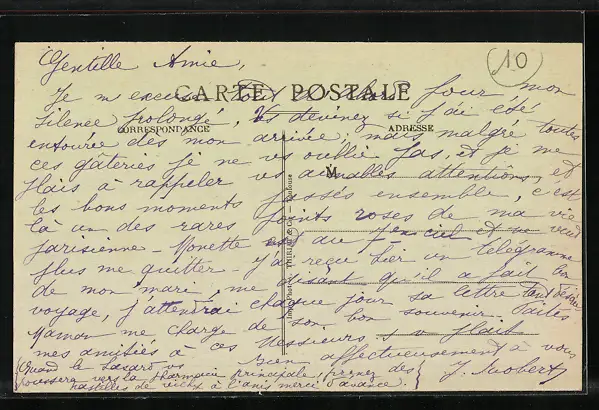 10
Gentille Amie,
Je m'excuse d'abord pour mon
CARTE POSTALE
silence prolongé, Vs devinez si j'ai été
CORRESPONDANCE
ADRESSE
entourée dès mon arrivée; mais malgré toutes
ces gâteries je ne vs oublie pas, et je me
M
plais à rappeler vs aimables attentions, et
les bons moments passés ensemble, c'est
là un des rares points roses de ma vie
parisienne. Monette est au 7eme ciel et ne veut
plus me quitter - J'ai reçu hier un télégramme
de mon mari, me disant qu'il a fait bon
voyage, j'attendrai chaque jour sa lettre tant désirée
Maman me charge de son bon souvenir. Faites
mes amitiés à ces Messieurs s v plait
Bien affectueusement à vous
J. Muobert
(Quand le vs
poussera vers la pharmacie principale, prenez des
pastilles de vichy à l'anis merci d'avance.)
Toulouse